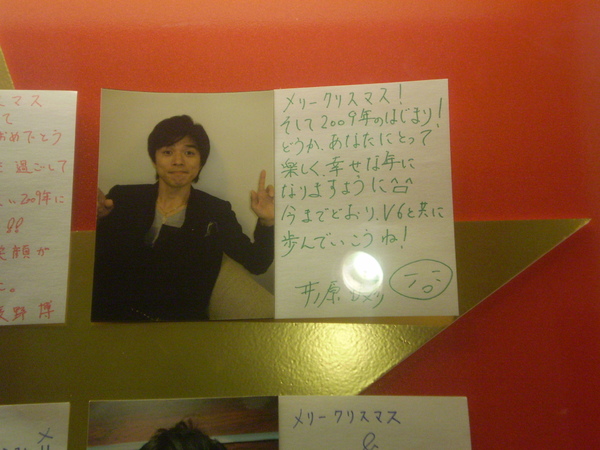 メリークリスマス!
そして2009年のはじまり!
どうか、あなたにとって
楽しく、幸せな年に
なりますように^^
今までどおり、V6と共に
歩んでいこうね!
井ノ原
スマス
て
おめでとう
過ごして
い2009年に
笑顔が
野 博
メリークリスマス
&